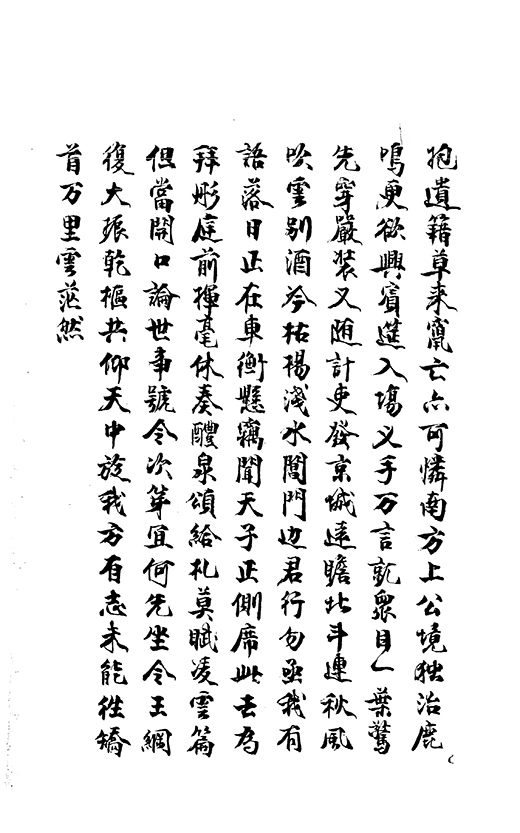 抱遺籍草萊竄亡亦可憐南方上公境独治鹿
鳴更欲興賓筵入場叉手万言就眾目一葉驚
先穿嚴裝又随計吏發京城遠瞻北斗連秋風
吹雲別酒冷枯楊淺水閶門边君行勿亟我有
語落日正在車衡懸竊聞天子正側席此去為
拜彤庭前揮毫休奏醴泉頌給札莫賦凌雲篇
但當開口論世事號令次第宜何先坐令王綱
復大振乾樞共仰天中旋我方有志未能往矯
首万里雲茫然